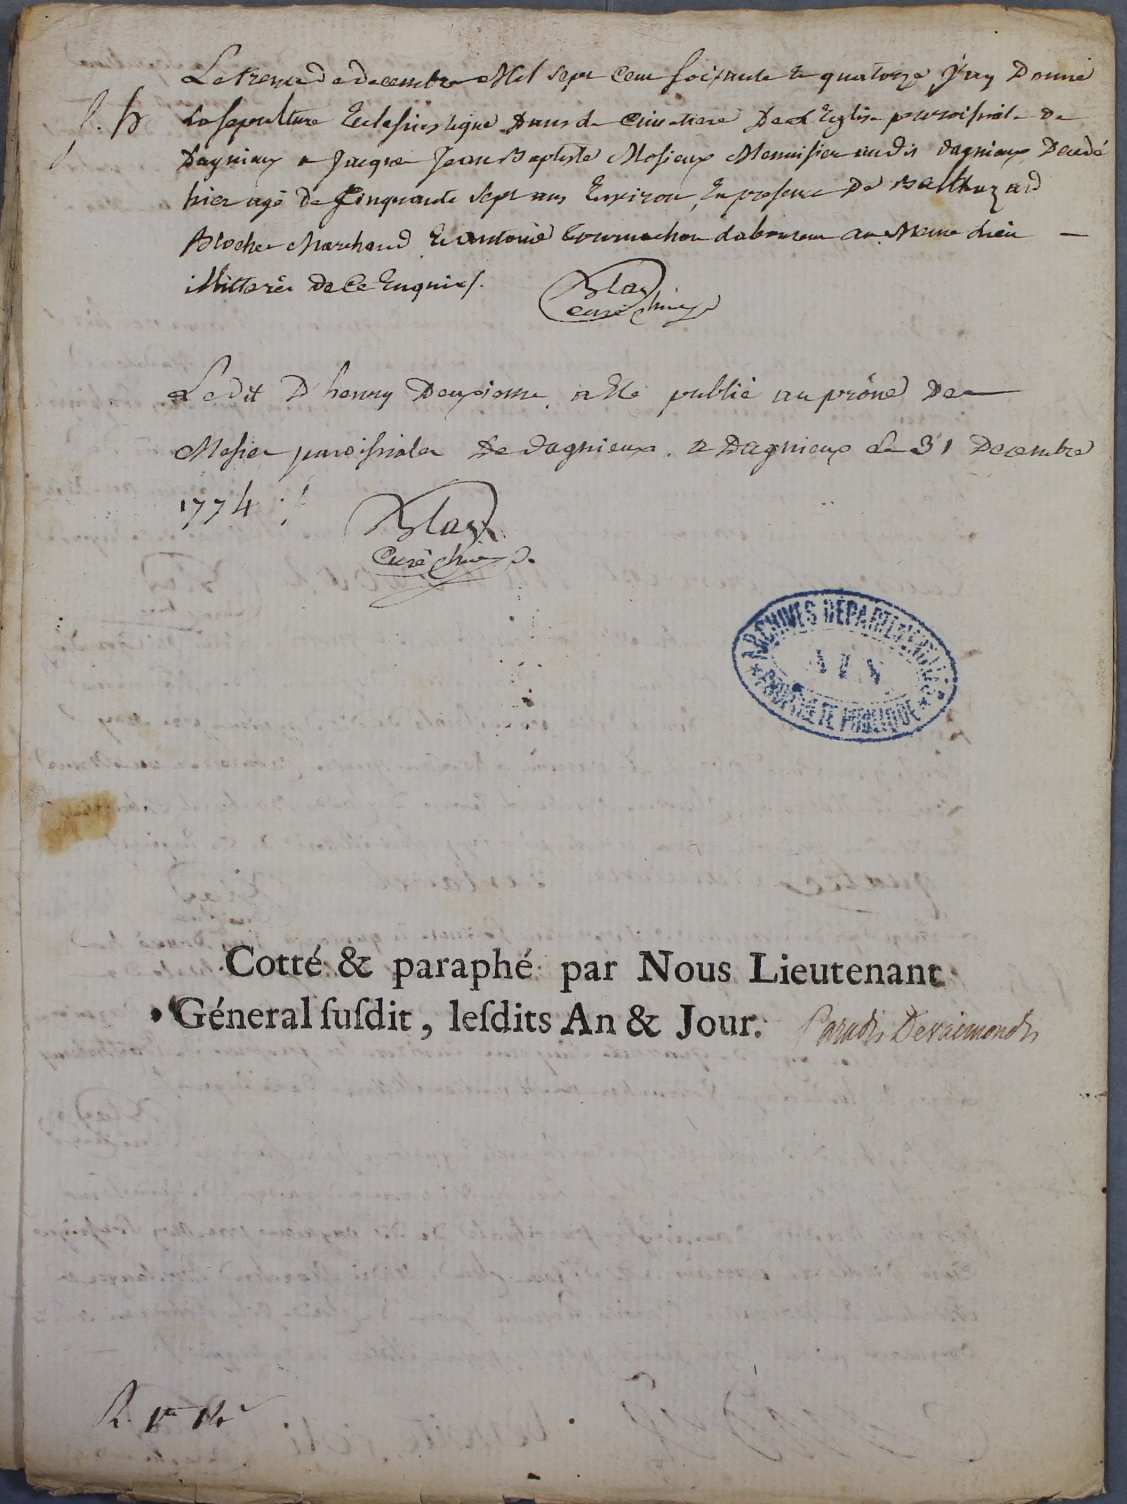 Le trente de decembre Mil sept cent soixante et quatorze J'ay Donné
S. h La sepulture Eclesiastique Dans le Cimetiere De L'Eglise paroissiale De
Dagnieux a Jacque Jean Baptiste Mosieux Menuisier au dit dagnieux Decedé
hier agé de Cinquante sept ans Environ, En presence De Balthazard
Blochet Marchand Et antoine Cournachon Laboureur au Meme Lieu —
illitterés De Ce Enquis.
Blay
curé
Ledit D'henry Deuxieme a Eté publié au prône De la
Messe paroissiale De dagnieux. a Dagnieux Le 31 Decembre
1774
Blay
Curé
ARCHIVES DÉPARTEMENTALES
AIN
PROPRIÉTÉ PUBLIQUE
Cotté & paraphé par Nous Lieutenant
Géneral ſuſdit, leſdits An & Jour. Paradis Deraimondis